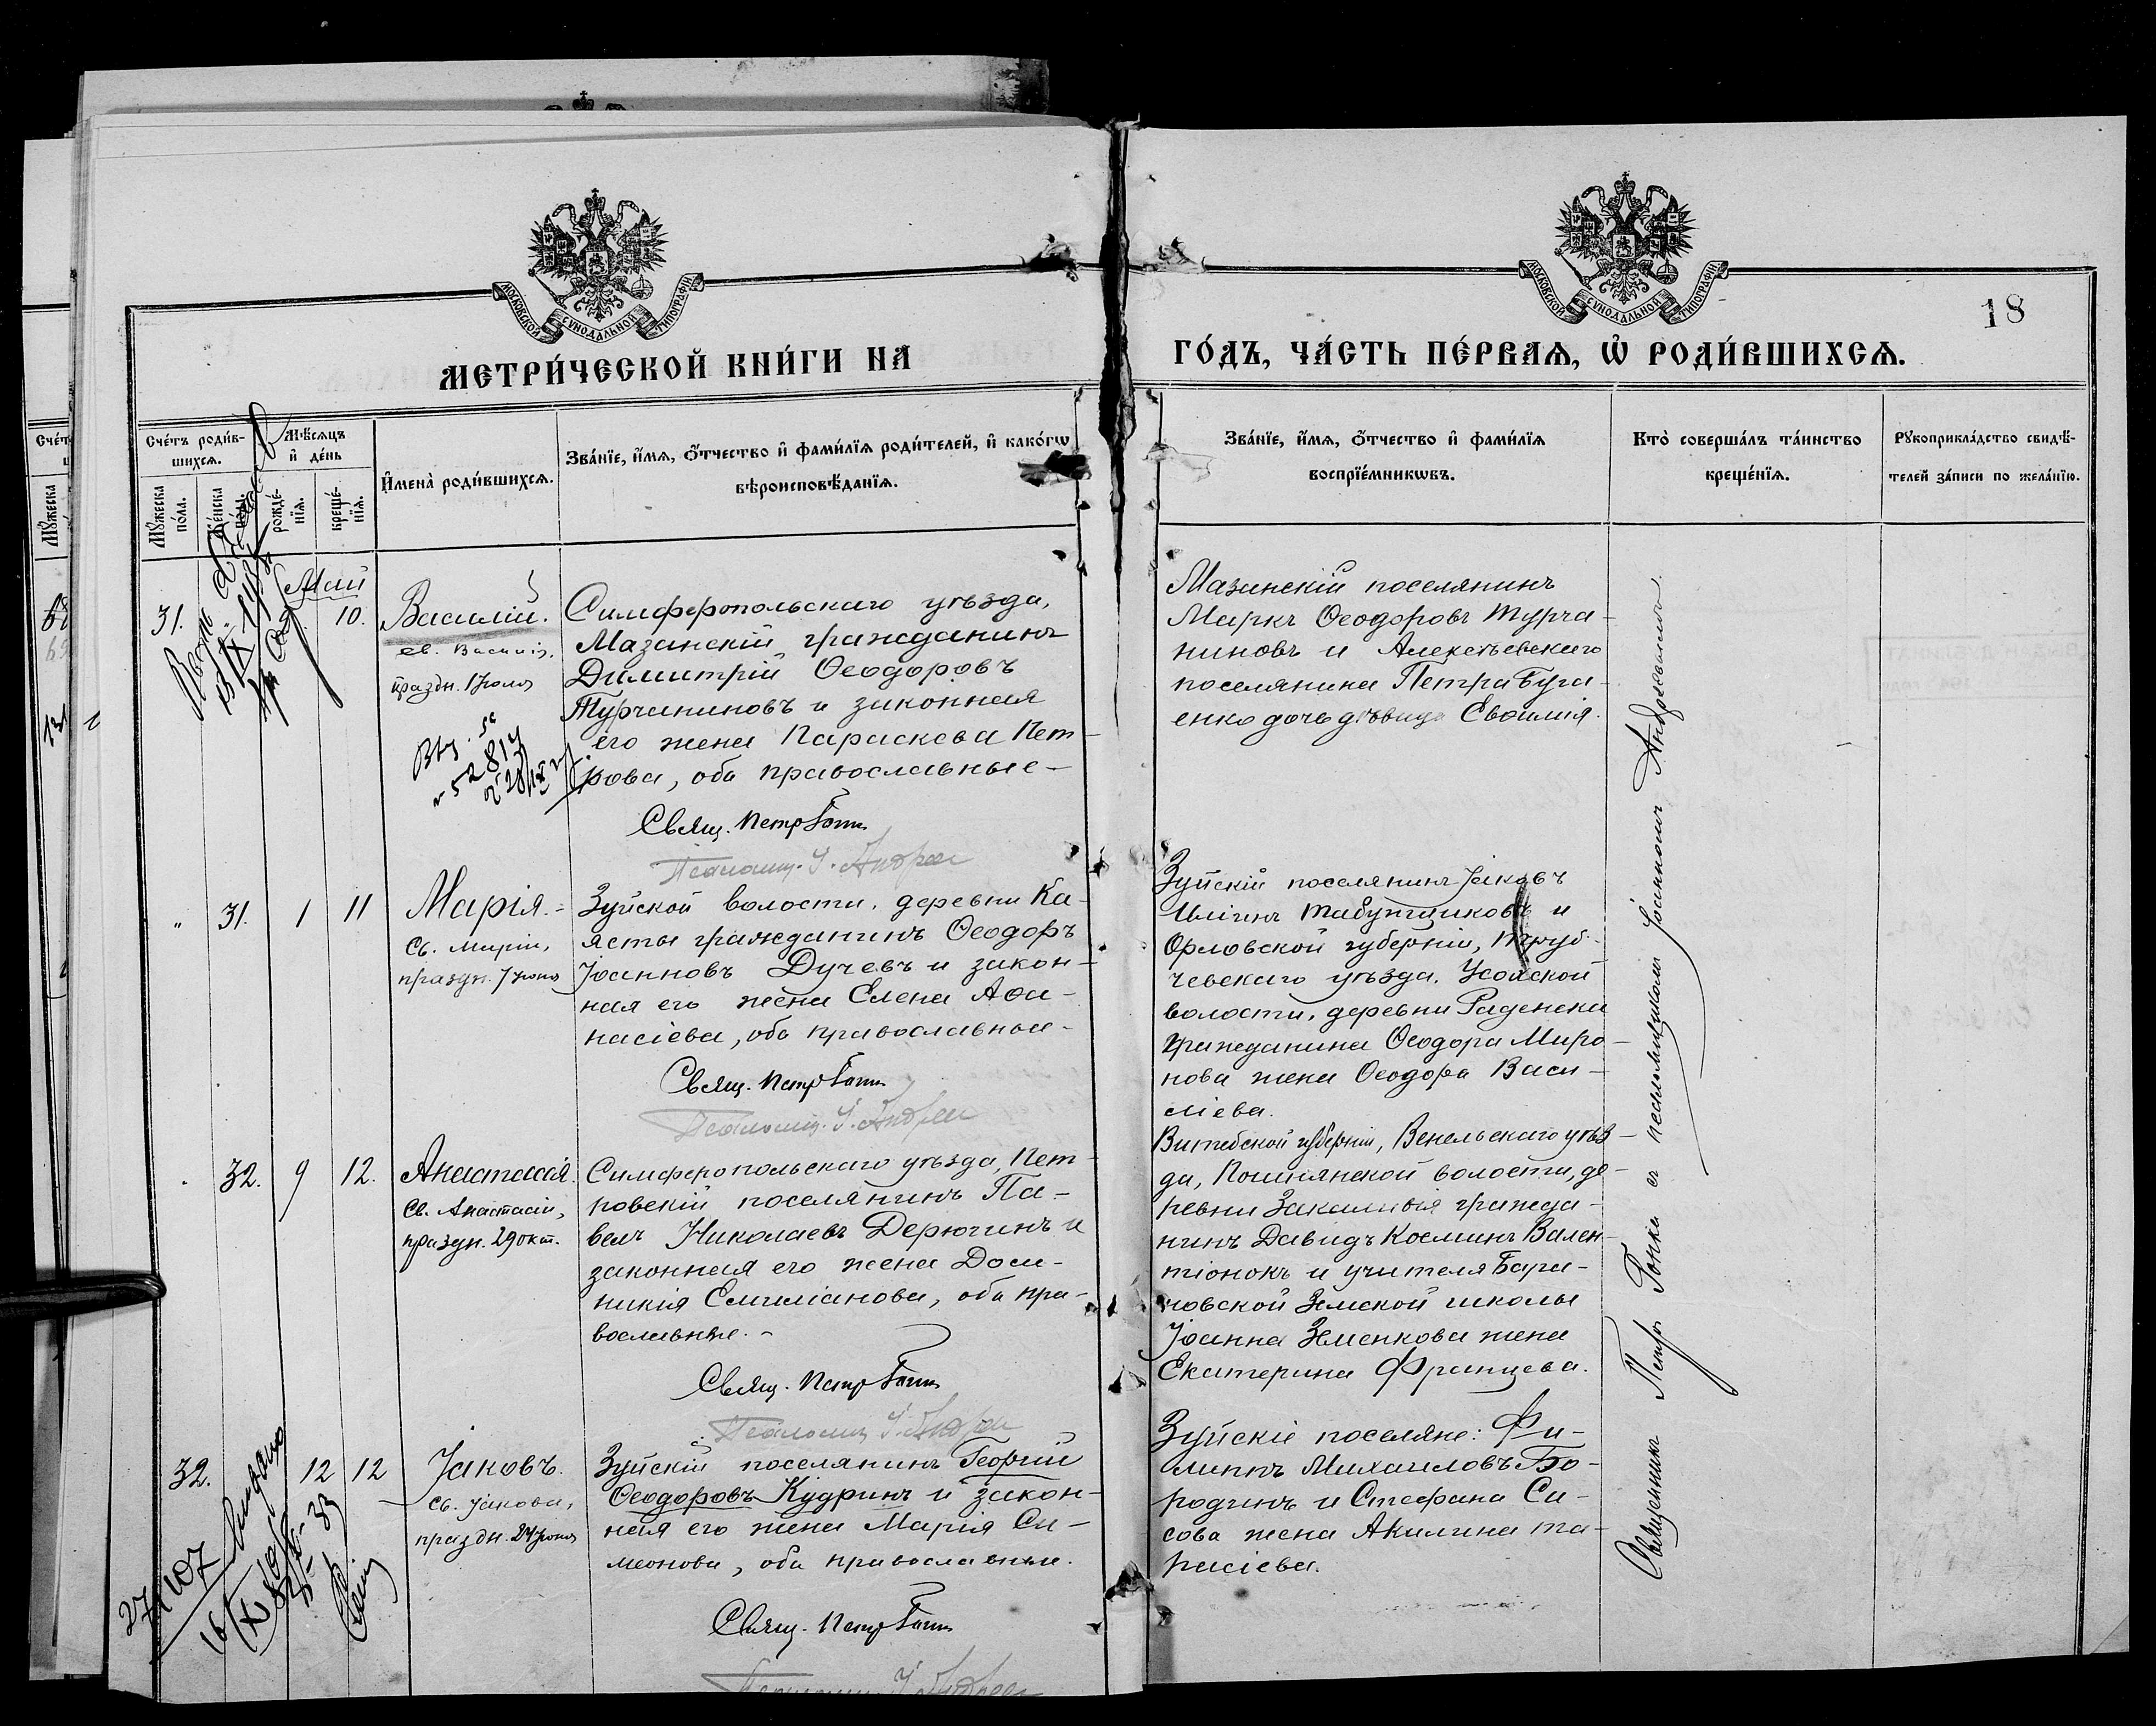 МОСКОВСКОЙ СУНОДАЛЬНОЙ ТИПОГРАФІИ
МОСКОВСКОЙ СУНОДАЛЬНОЙ ТИПОГРАФІИ
18
МЕТРИ́ЧЕСКОЙ КНИ́ГИ НА
ГО́ДЪ, ЧА́СТЬ ПЕ́РВАѦ, Ѡ҆ РОДИ́ВШИХСѦ.
Сче́тъ роди́в-
шихсѧ.
Мꙋ́жеска
по́ла.
Же́нска
по́ла.
Мѣ́сѧцъ
и҆ де́нь
рожде́-
нїѧ.
креще́-
нїѧ.
И҆мена̀ роди́вшихсѧ.
Зва́нїе, и҆́мѧ, ѻ҆́тчество и҆ фами́лїѧ роди́телей, и҆ како́гѡ
вѣроисповѣ́данїѧ.
Зва́нїе, и҆́мѧ, ѻ҆́тчество и҆ фами́лїѧ
воспрїе́мникѡвъ.
Кто̀ соверша́лъ та́инство
креще́нїѧ.
Рꙋкоприкла́дство свидѣ́-
телей за́писи по жела́нїю.
Май
31.
10.
Василій.
св. Василія,
праздн.
Симферопольскаго уѣзда,
Мазанскій гражданинъ
Димитрій Ѳеодоровъ
Турчаниновъ и законная
его жена Параскева Пет-
рова, оба православные
Свящ. Петръ
Псаломщ. І. Андрее
Мазанскій поселянинъ
Маркъ Ѳеодоровъ Турча-
ниновъ и Алексѣевскаго
поселянина Петра Буга-
енко дочь дѣвица Евѳимія.
"
31.
1
11
Марія.
Св. Маріи,
праздн.
Зуйской волости, деревни Ка-
ясты гражданинъ Ѳеодоръ
Іоанновъ Дучевъ и закон-
ная его жена Елена Аѳа-
насіева, оба православные
Свящ. Петръ
Псаломщ. І. Андрее
Зуйскій поселянинъ Іаковъ
Иліинъ Табунщиковъ и
Орловской губерніи, Труб-
чевскаго уѣзда, Усожской
волости, деревни Раденска
гражданина Ѳеодора Миро-
нова жена Ѳеодора Васи-
ліева.
32.
9
12.
Анастасія.
Св. Анастасіи,
праздн. 29 окт.
Симферопольскаго уѣзда, Пет-
ровскій поселянинъ Па-
велъ Николаевъ Дерюгинъ и
законная его жена Дом-
никія Емиліанова, оба пра-
вославные.
Свящ. Петръ
Псаломщ. І. Андрее
Витебской губерніи, уѣз-
да, волости, де-
ревни гражда-
нинъ Давидъ Космминъ Вален-
тіонокъ и учителя Бара-
новской Земской школы
Іоанна Зменкова жена
Екатерина Францева.
32.
12
12
Іаковъ.
Св. Іакова,
праздн.
Зуйскій поселянинъ Георгій
Ѳеодоровъ Кудринъ и закон-
ная его жена Марія Си-
меонова, оба православные.
Свящ. Петръ
Зуйскіе поселяне: Фи-
липпъ Михаиловъ Бо-
родинъ и Стефана Си-
сова жена Акилина Та-
расіева.
Священникъ Петръ съ псаломщикомъ Іоанномъ